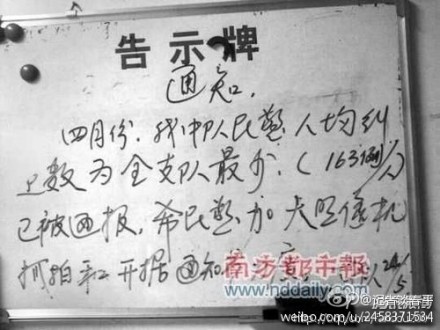 告示牌
通知.
四月份.我中队民警人均纠
违数为全支队最少.(163例/人)
已被通报,希民警加大照像机
抓拍和开据通知
南方都市报
www.nddaily.com
24/5
weibo.com/u/2458371534